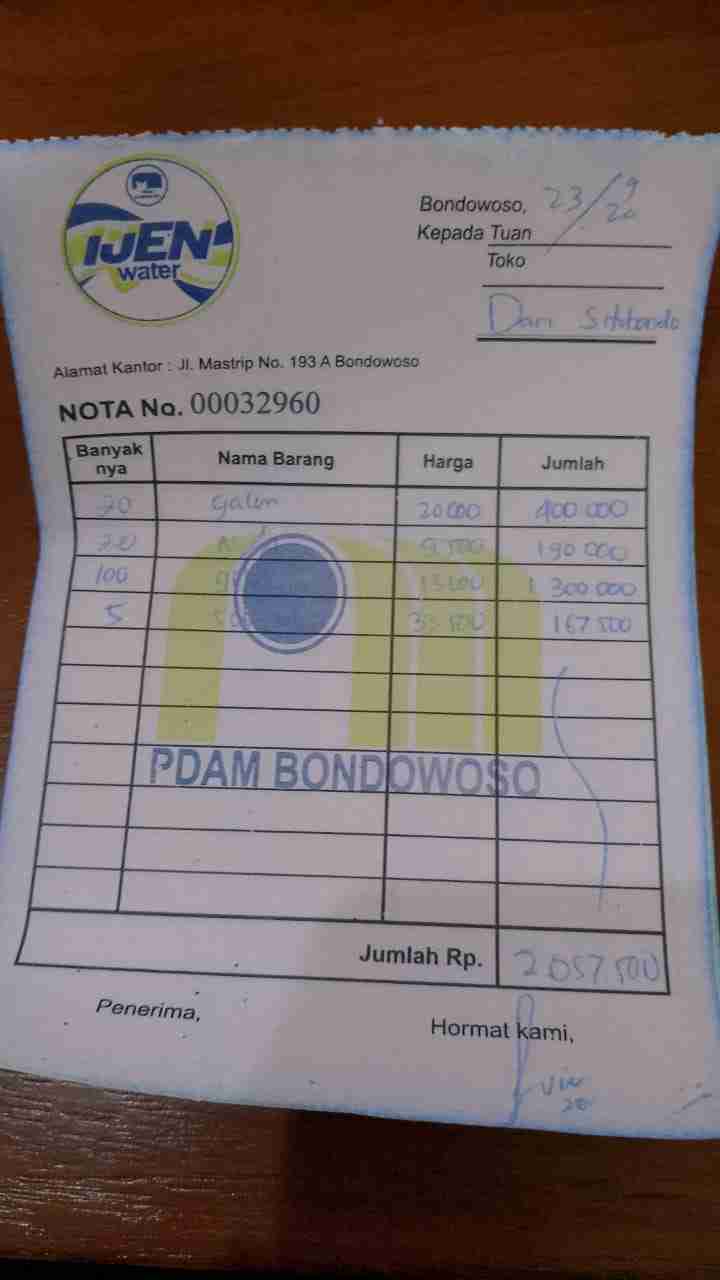 IJEN
water
Bondowoso, 23/9 20
Kepada Tuan
Toko
Dari Situbondo
Alamat Kantor : Jl. Mastrip No. 193 A Bondowoso
NOTA No. 00032960
Banyak nya Nama Barang Harga Jumlah
20 galon 20 000 400 000
20 9 500 190 000
100 13 000 1 300 000
5 33 500 167 500
PDAM BONDOWOSO
Jumlah Rp. 2 057 500
Penerima,
Hormat kami,